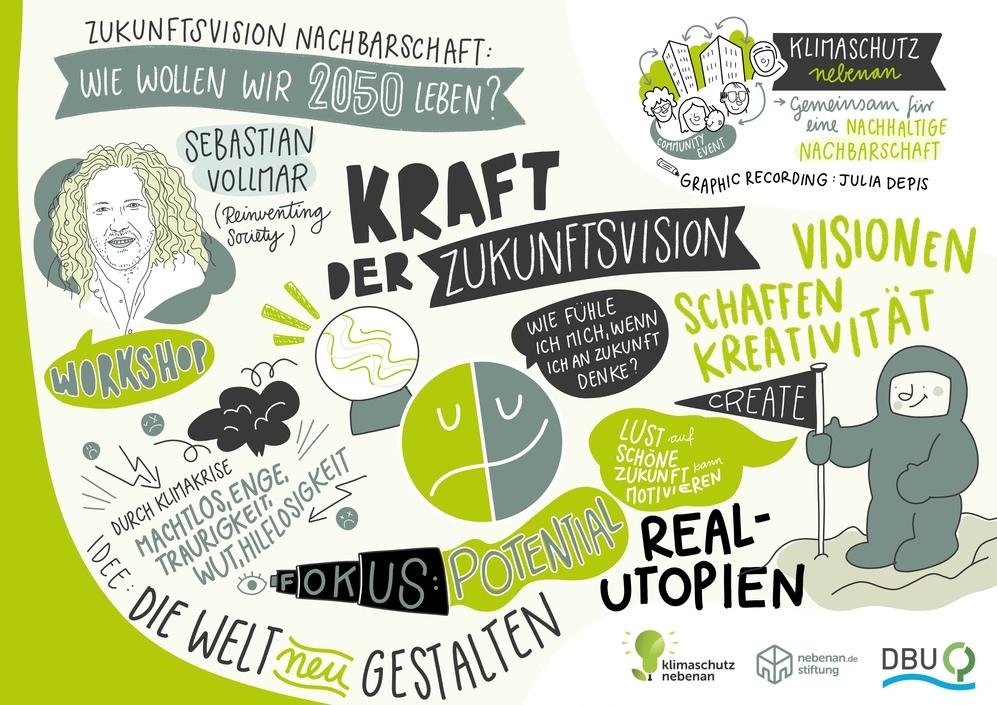 ZUKUNFTSVISION NACHBARSCHAFT:
WIE WOLLEN WIR 2050 LEBEN?
SEBASTIAN
VOLLMAR
(Reinventing
Society)
WORKSHOP
KLIMASCHUTZ
nebenan
COMMUNITY
EVENT
→ Gemeinsam für
eine NACHHALTIGE
NACHBARSCHAFT
GRAPHIC RECORDING: JULIA DEPIS
KRAFT
DER ZUKUNFTSVISION
VISIONEN
SCHAFFEN
KREATIVITÄT
WIE FÜHLE
ICH MICH, WENN
ICH AN ZUKUNFT
DENKE?
CREATE
LUST auf
SCHÖNE
ZUKUNFT kann
MOTIVIEREN
DURCH KLIMAKRISE
MACHTLOS, ENGE,
TRAURIGKEIT,
WUT, HILFLOSIGKEIT
FOKUS: POTENTIAL
REAL-
UTOPIEN
IDEE: DIE WELT neu GESTALTEN
klimaschutz
nebenan
nebenan.de
stiftung
DBU